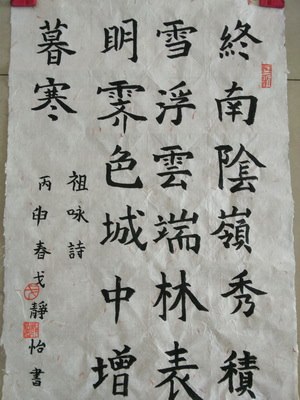 終南陰嶺秀積
雪浮雲端林表
明霽色城中增
暮寒
祖咏詩
丙申春戈靜怡書